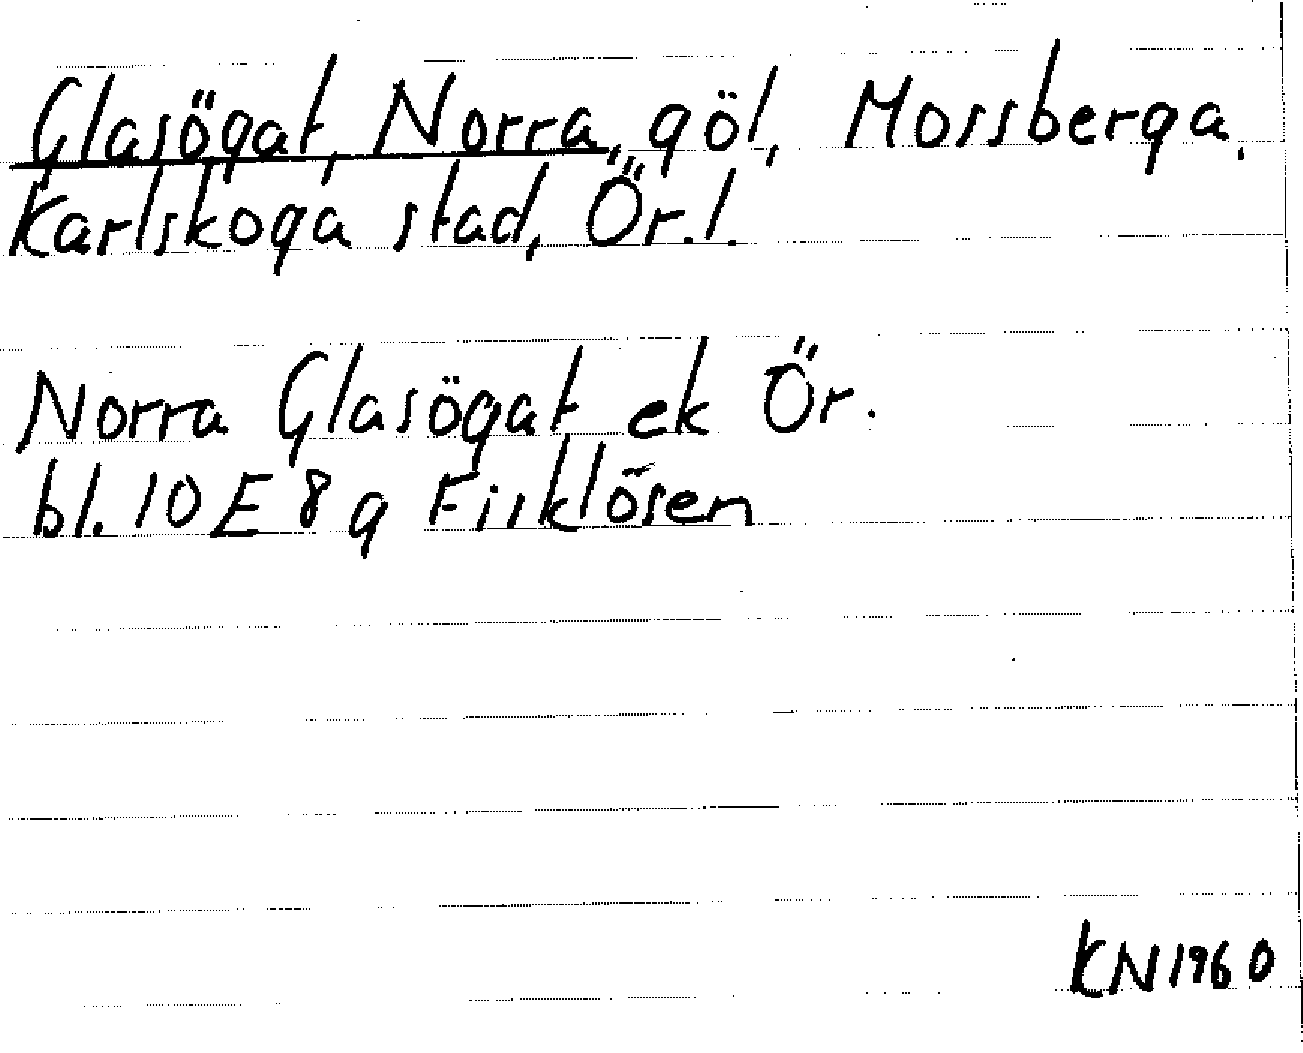 Glasögat, Norra, göl, Mossberga,
Karlskoga stad, Ör.l.
Norra Glasögat ek Ör.
bl. 10 E 8 g Fisklösen
KN 1960